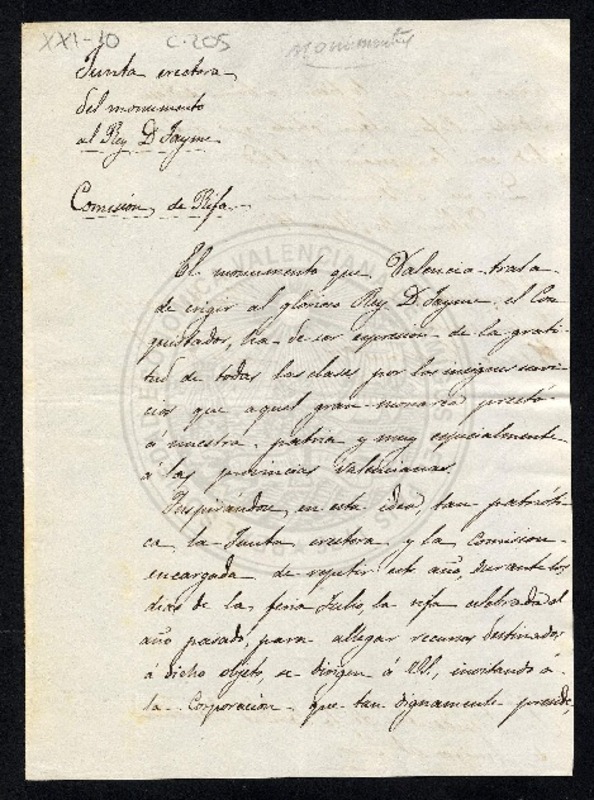 XXI-10 C-205 Monumentos
Junta erectora
del monumento
al Rey D. Jayme
Comision de Rifa.
El monumento que Valencia trata
de erigir al glorioso Rey D. Jayme el Con
quistador, ha de ser espresion de la grati
tud de todas las clases por los insignes servi
cios que aquel gran monarca prestó
á nuestra patria y muy especialmente
á las provincias Valencianas.
Inspirándose en esta idea tan patrióti
ca, la Junta erectora y la Comision
encargada de repetir este año, durante los
dias de la feria Julio, la rifa celebrada el
año pasado, para allegar recursos destinados
á dicho objeto, se dirigen á VS., invitando á
la Corporacion que tan dignamente preside,